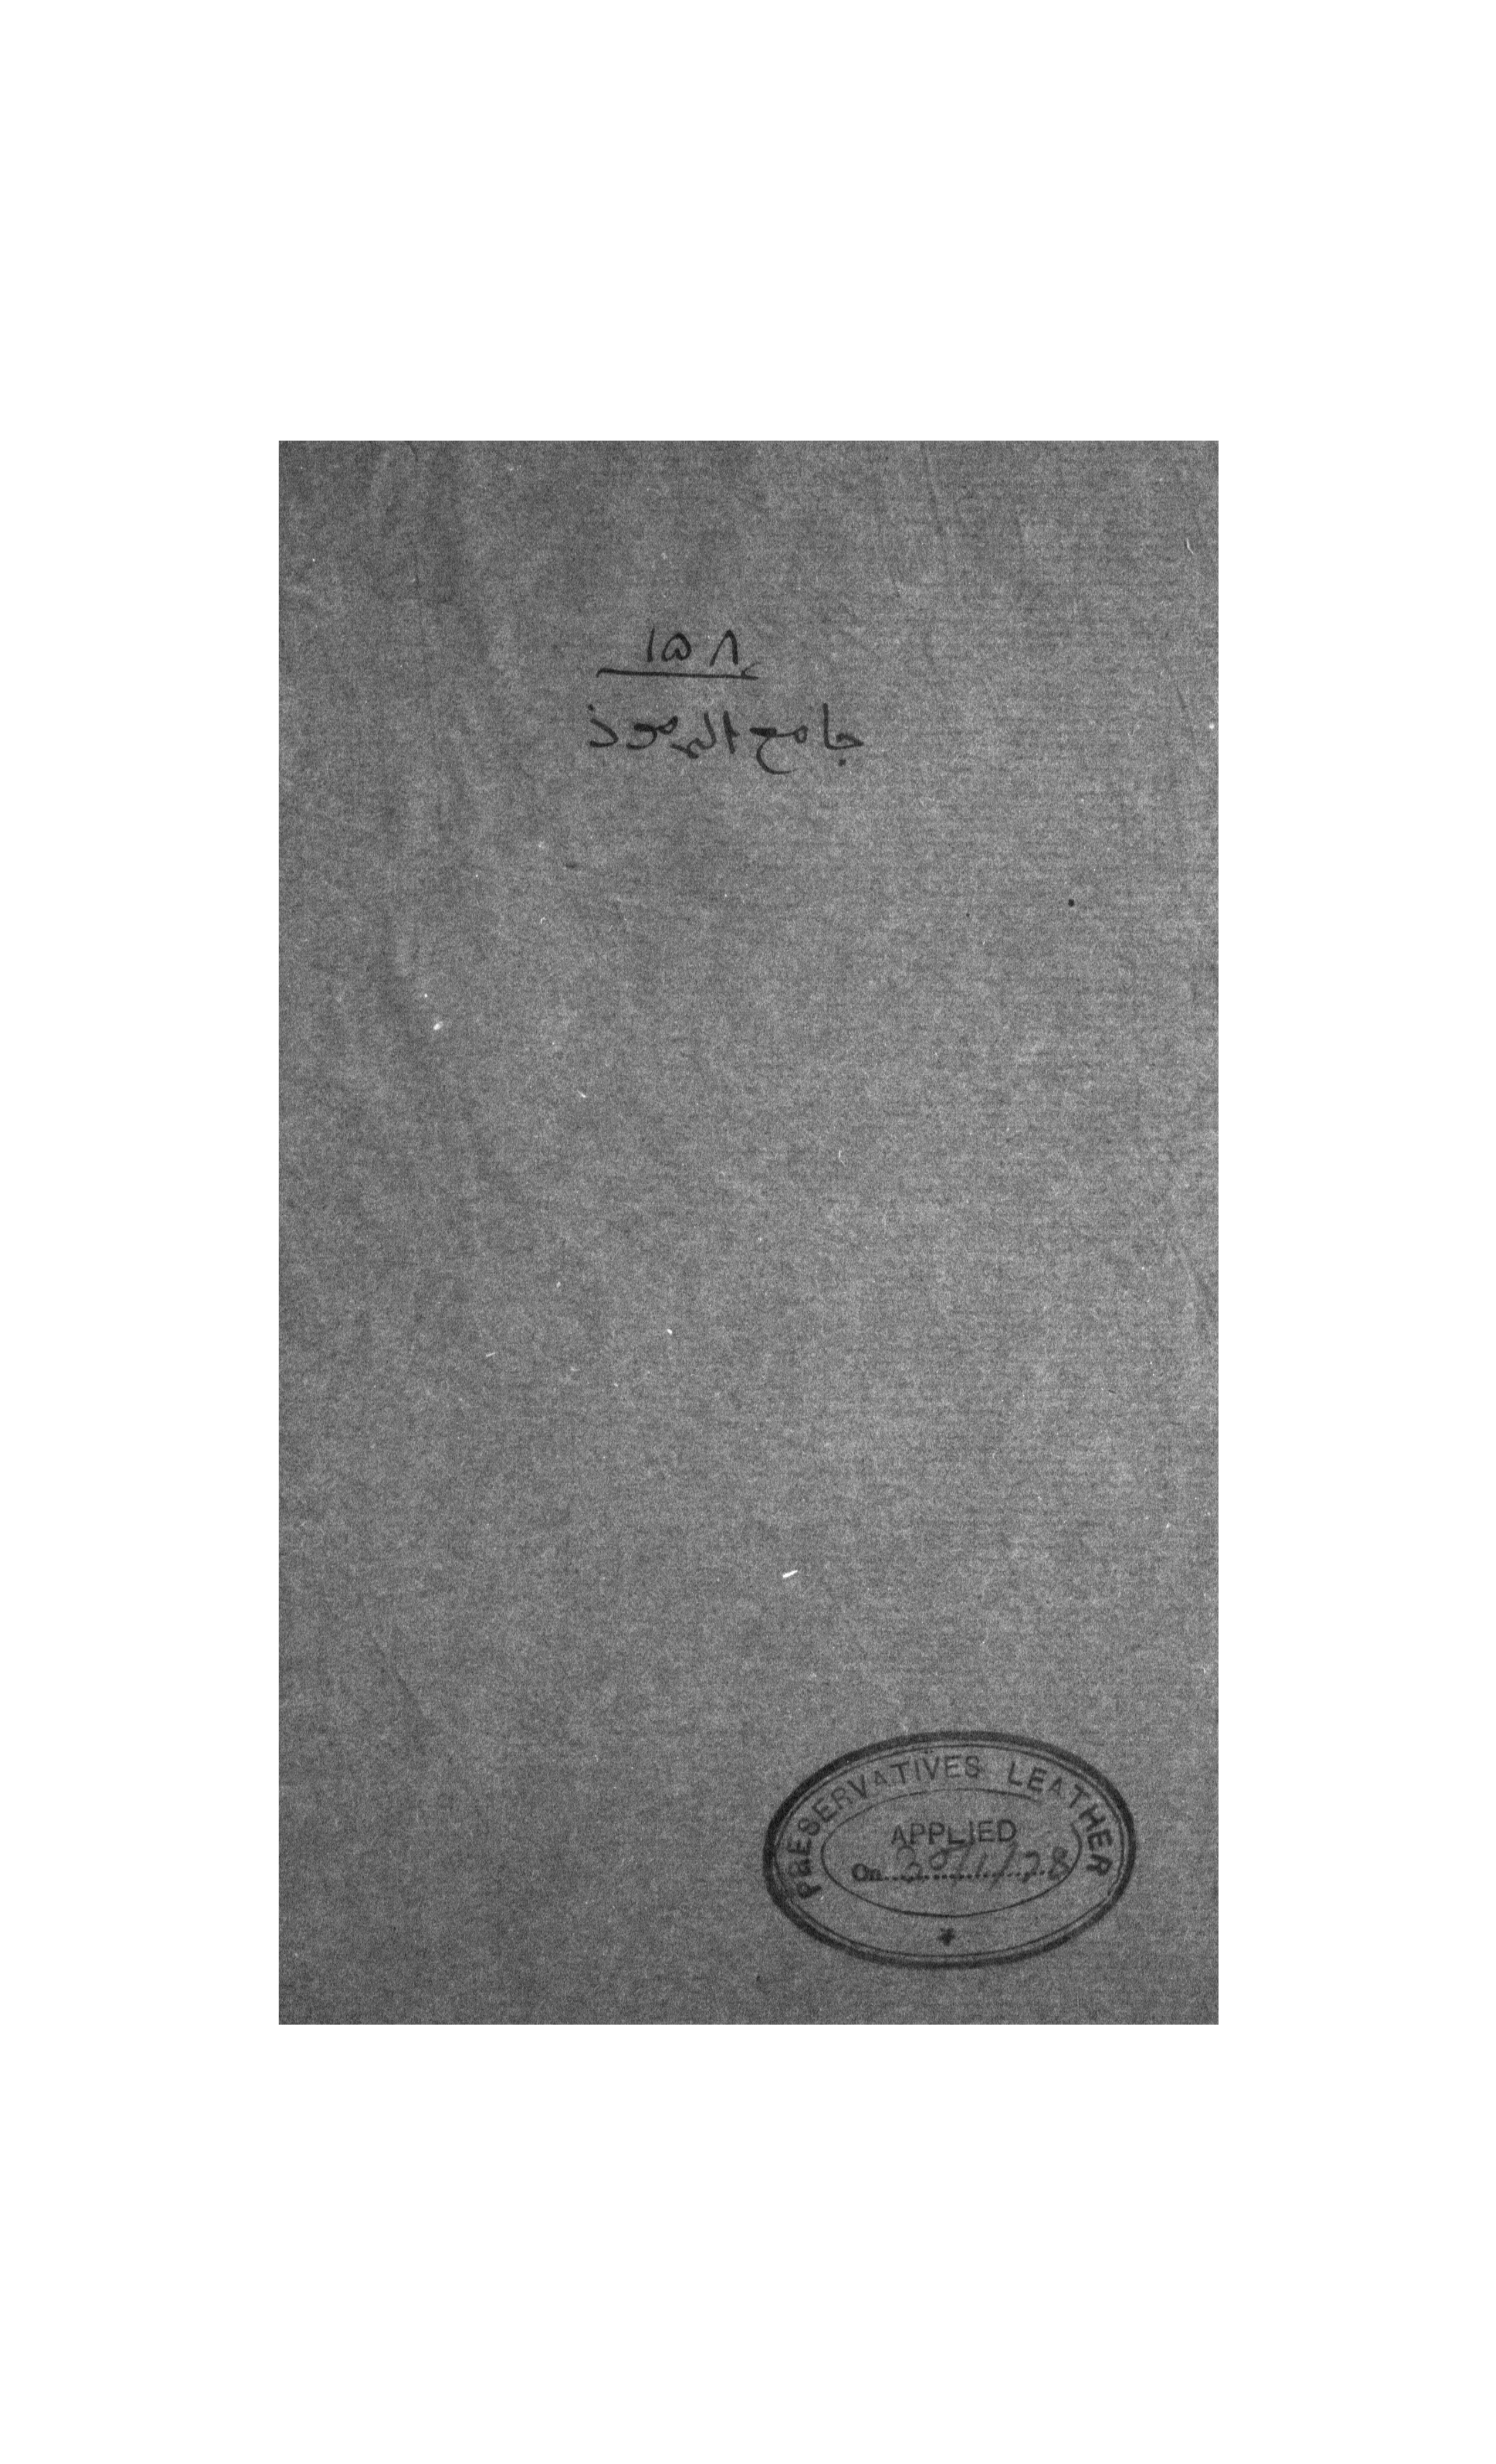 ۱۵۸
جامع الرموز
PRESERVATIVES LEATHER
APPLIED
On